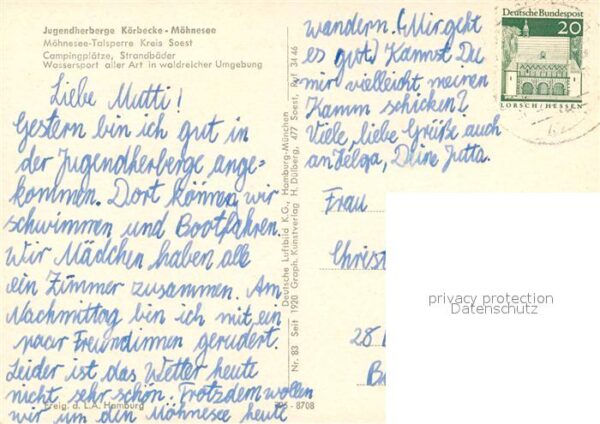 Jugendherberge Körbecke - Möhnesee
Möhnesee-Talsperre Kreis Soest
Campingplätze, Strandbäder
Wassersport aller Art in waldreicher Umgebung
Liebe Mutti!
Gestern bin ich gut in
der Jugendherberge ange=
kommen. Dort können wir
schwimmen und Bootfahren.
Wir Mädchen haben alle
ein Zimmer zusammen. Am
Nachmittag bin ich mit ein
paar Freundinnen gerudert.
Leider ist das Wetter heute
nicht sehr schön. Trotzdem wollen
wir um den Möhnesee heute
Freig. d. L.A. Hamburg 795 - 8708
Deutsche Luftbild K.G., Hamburg-München
Nr. 83 Seit 1920 Graph. Kunstverlag H. Dülberg, 477 Soest, Ruf 3446
wandern. (Mir geht
es gut) Kannst Du
mir vielleicht meinen
Kamm schicken?
Viele, liebe Grüße auch
an Helga, Deine Jutta.
Deutsche Bundespost
20
LORSCH/HESSEN
Frau
Christ
28
privacy protection
Datenschutz